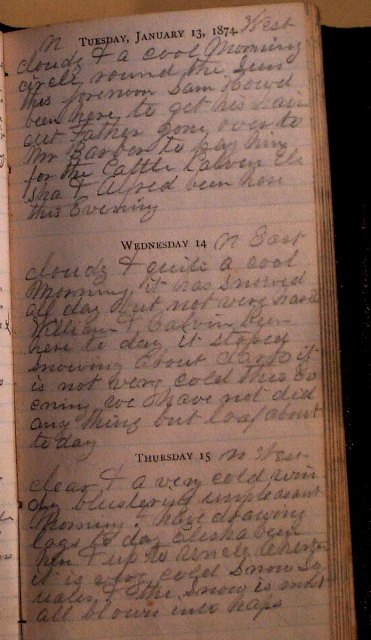 N TUESDAY, JANUARY 13, 1874. West
cloudy & a cool Morning
circle round the Sun
this forenoon Sam
been here to get his hair
cut Father gone over to
Mr Barber to pay him
for the Cattle Calvin Eli
sha & Alfred been here
this Evening
WEDNESDAY 14 N East
cloudy & quite a cool
Morning it has Snowed
all day but not very hard
William & Calvin been
here to day it stoped
snowing about dark it
is not very cold this Ev
ening we have not did
any thing but loaf about
to day
THURSDAY 15 N West
clear & a very cold win
dy blustering unpleasant
Morning, have drawing
logs to day Elisha been
here & up to uncle
it is very cold Snow Sq
ualls & the Snow is most
all blown into heaps